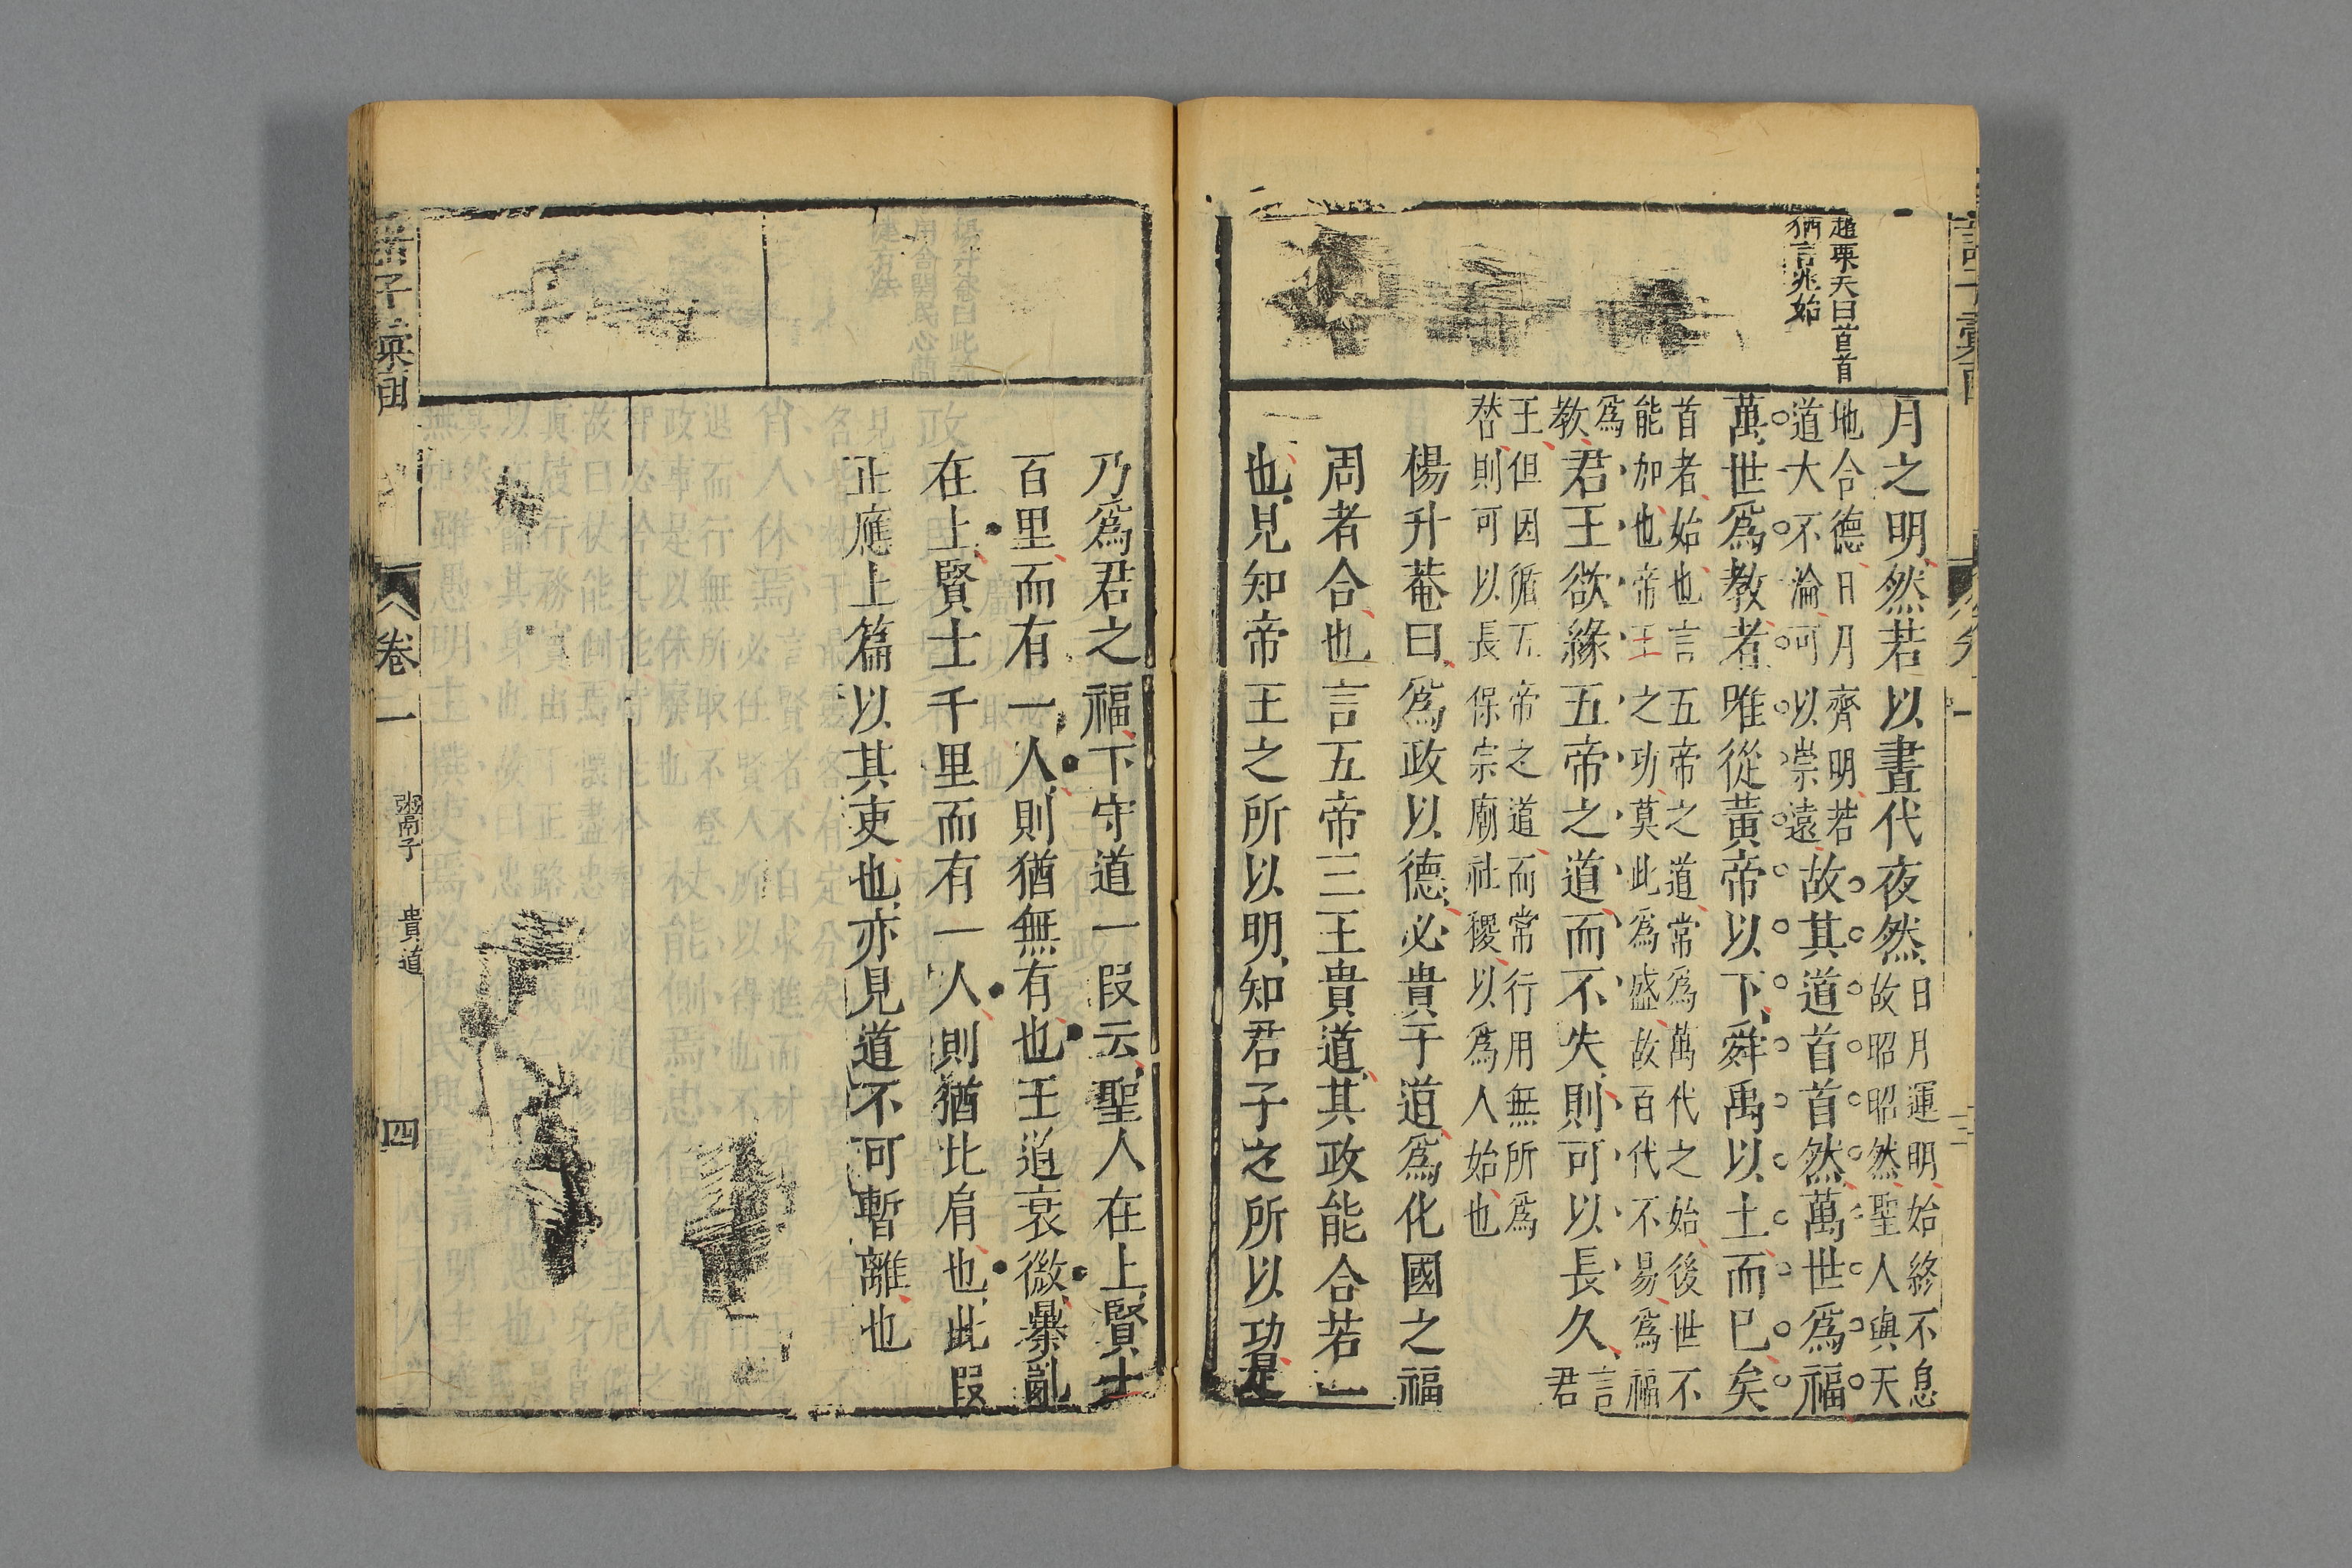 諸子彙函
卷一
趙栗天曰首首
猶言兆始
月之明然若以晝代夜然日月運明始終不息
故昭昭然聖人與天
地合德日月齊明若
道大不淪可以崇遠故其道首首然萬世爲福
萬世爲教者唯從黃帝以下舜禹以土而已矣
首者始也言五帝之道常爲萬代之始後世不
能加也帝王之功莫此爲盛故百代不易爲福
爲
教君王欲緣五帝之道而不失則可以長久言
君
王但因循五帝之道而常行用無所爲
替則可以長保宗廟社稷以爲人始也
楊升菴曰爲政以德必貴于道爲化國之福
周者合也言五帝三王貴道其政能合若一
也見知帝王之所以明知君子之所以功是
乃爲君之福下守道一段云聖人在上賢士
百里而有一人則猶無有也王道衰微暴亂
在上賢士千里而有一人則猶比肩也此段
正應上篇以其吏也亦見道不可暫離也
諸子彙函
卷一
鬻子
貴道
四